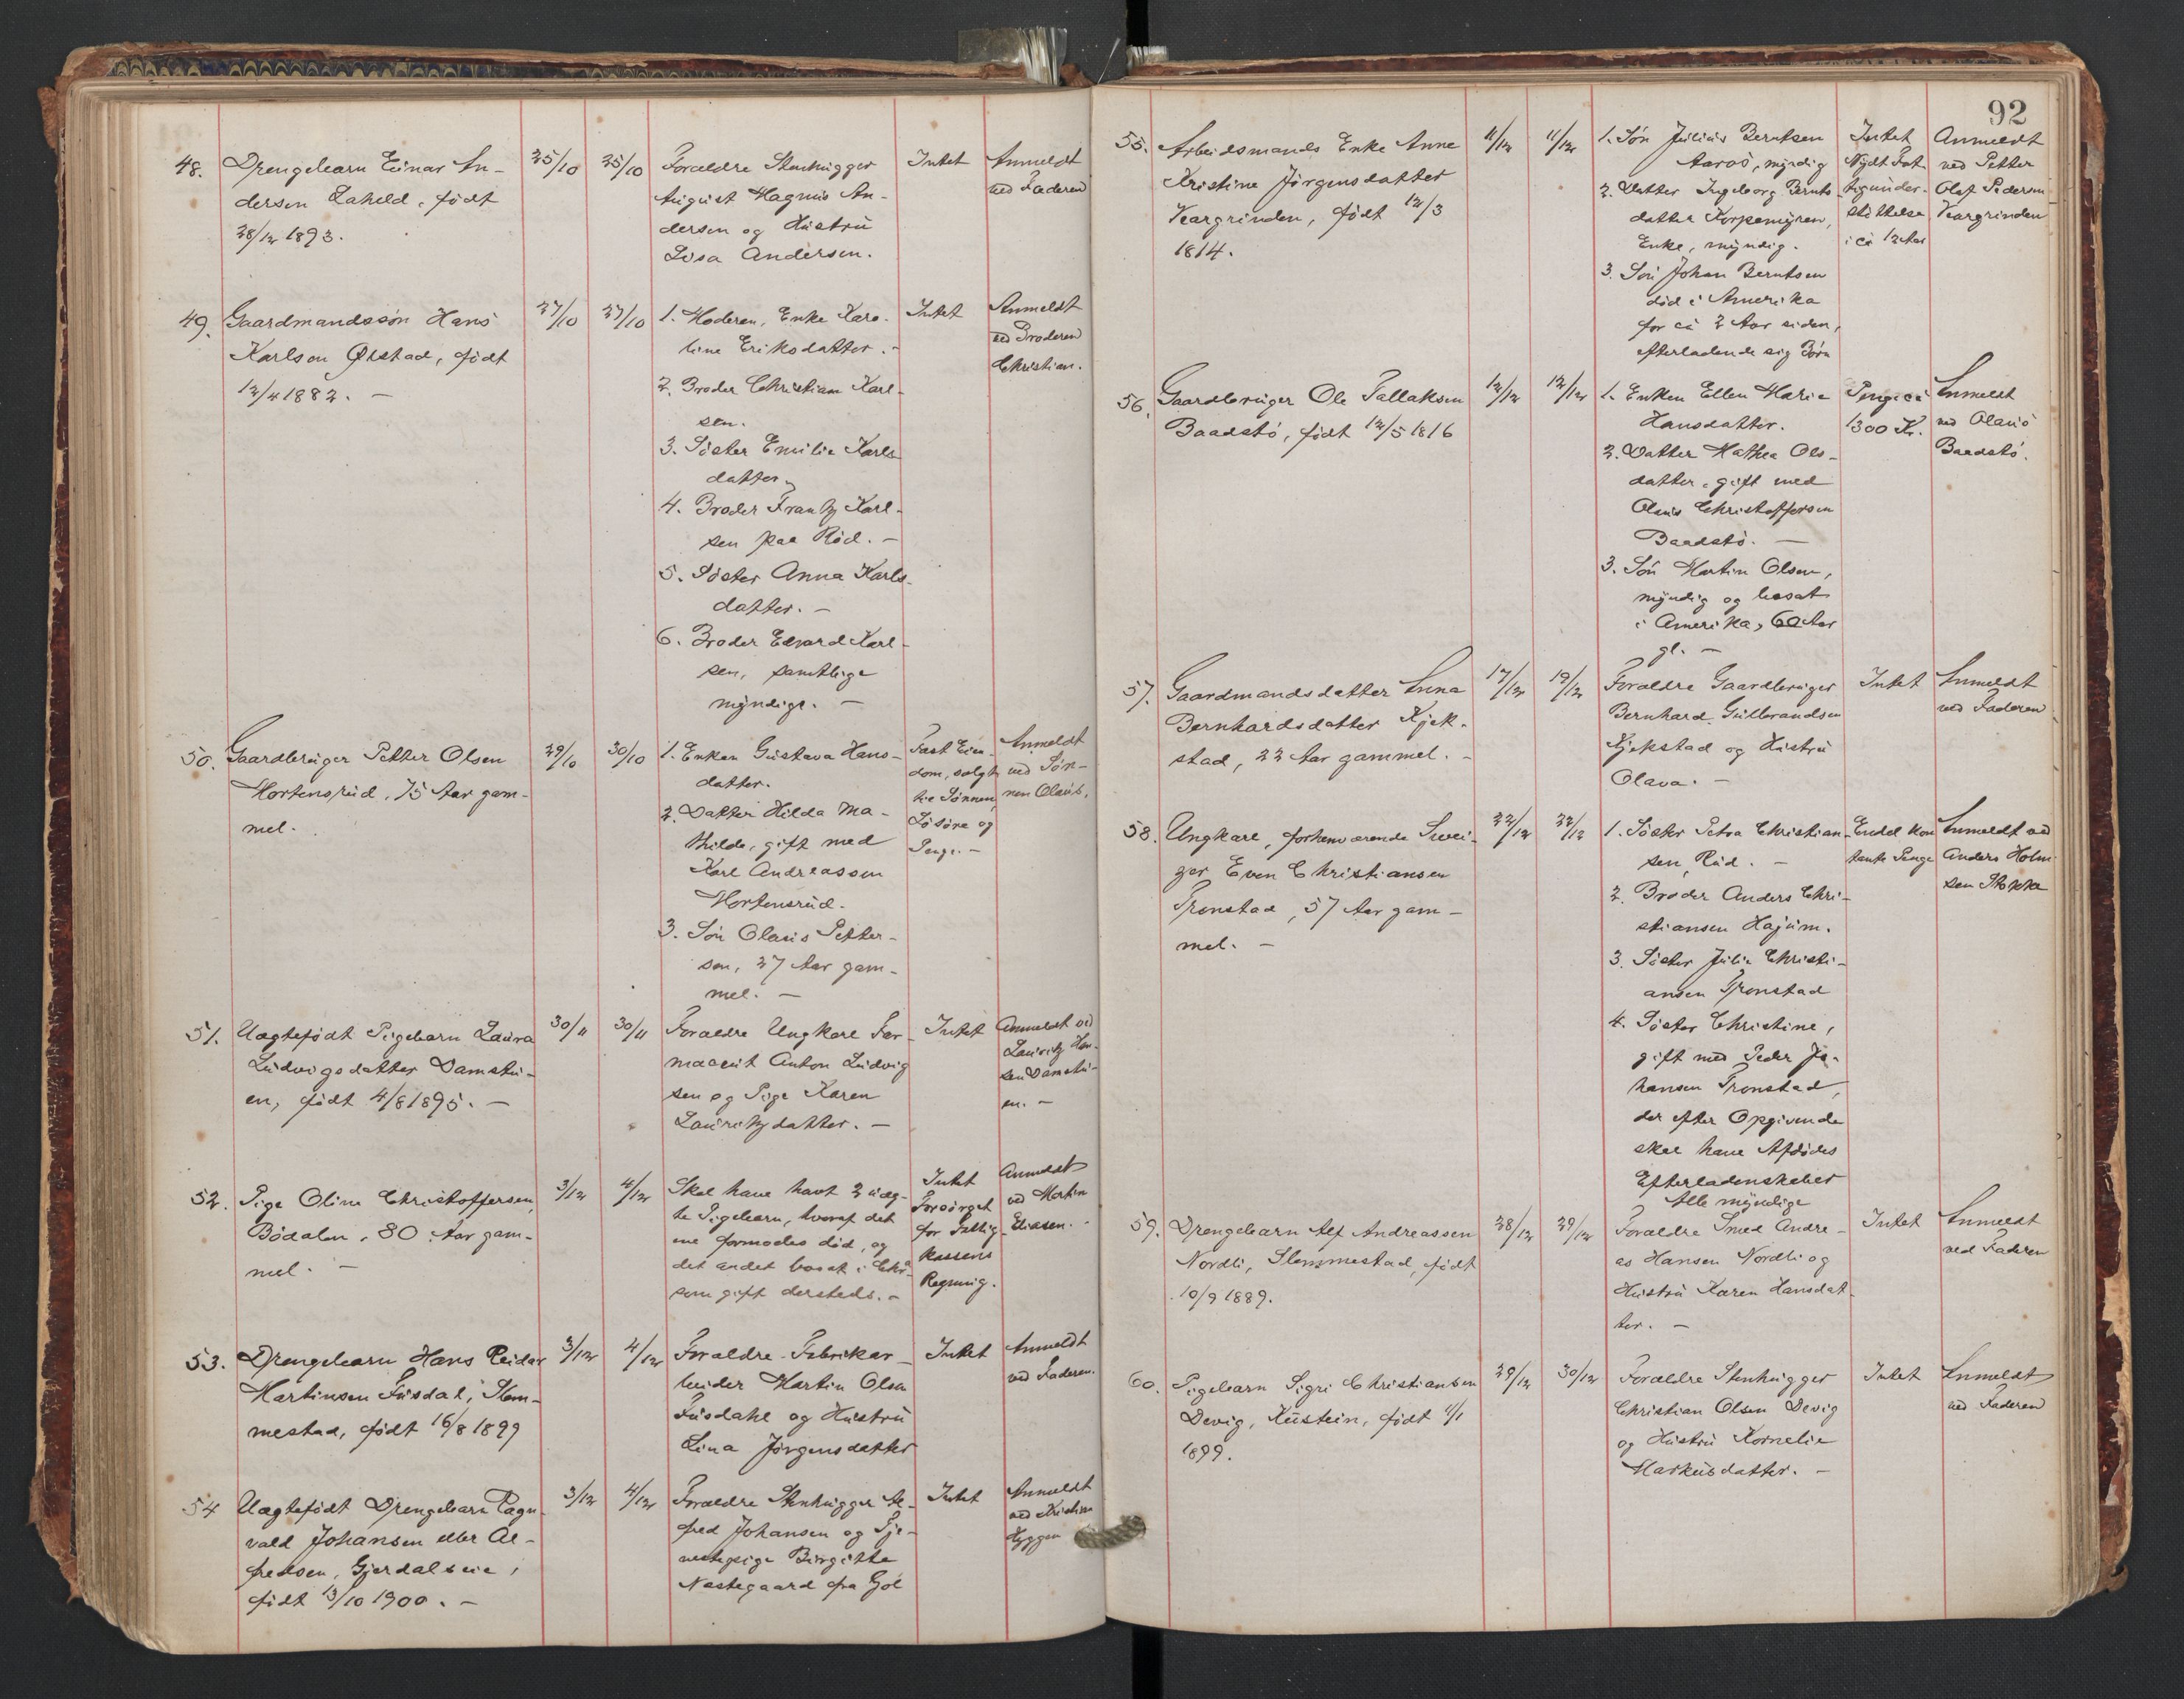 48. Drengebarn Einar An-
dersen Laheld, født
28/12 1893.
25/10
25/10
Forældre Stenhugger
August Magnus An-
dersen og Hustru
Lovisa Andersen.
Intet
Anmeldt
ved Faderen
49. Gaardmandssøn Hans
Karlsen Ørstad, født
12/4 1882. —
27/10
27/10
1. Moderen, Enke Karo-
line Eriksdatter. -
2. Broder Christian Karl-
sen.
3. Søster Emilie Karls
datter,
4. Broder Frantz Karl-
sen paa Rød. —
5. Søster Anna Karls-
datter. —
6. Broder Edvard Karl-
sen, samtlige
myndige. —
Intet
Anmeldt
ved Broderen
Christian.
50. Gaardbruger Petter Olsen
Mortensrud, 75 Aar gam-
mel.
29/10
30/10
1. Enken Gustava Hans-
datter.
2. Datter Hilda Ma-
thilde, gift med
Karl Andreassen
Mortensrud.
3. Søn Olaus Petter-
sen, 27 Aar gam-
mel. —
Fast Eien-
dom, solgt
til Sønnen,
Løsøre og
Penge. —
Anmeldt
ved Søn-
nen Olaus.
51. Uægtefødt Pigebarn Laura
Ludvigsdatter Damstu-
en, født 4/8 1895. —
30/11
30/11
Forældre Ungkarl Far-
maceut Anton Ludvig
sen og Pige Karen
Lauritzdatter. —
Intet
Anmeldt ved
Lauritz Han-
sen Damstu-
en. —
52. Pige Oline Christoffersen,
Bødalen, 80 Aar gam-
mel. —
3/12
4/12
Skal have havt 2 uæg-
te Pigebarn, hvoraf det
ene formodes død, og
det andet bosat i Chra
som gift dersteds. —
Intet
Forsørget
for Fattig-
kassens
Regning.
Anmeldt
ved Martin
Eliasen.
53. Drengebarn Hans Reidar
Martinsen Fusdal, Slem-
mestad, født 16/8 1899
3/12
4/12
Forældre Fabrikar-
beider Martin Olsen
Fusdahl og Hustru
Lina Jørgensdatter
Intet
Anmeldt
ved Faderen.
54 Uægtefødt Drengebarn Ragn-
vald Johansen eller Al-
fredsen, Gjerdalseie,
født 13/10 1900. —
3/12
4/12
Forældre Stenhugger Al-
fred Johansen og Tje-
nestepige Birgitte
Nestegaard fra Gol
Intet
Anmeldt
ved Kristian
Hyggen
92
55. Arbeidsmands Enke Anne
Kristine Jørgensdatter
Veargrinden, født 12/3
1814.
11/12
11/12
1. Søn Julius Berntsen
Aaros, myndig
2. Datter Ingeborg Bernts
datter Korpemyren,
Enke, myndig.
3. Søn Johan Berntsen
død i Amerika
for ca 2 Aar siden,
efterladende sig Børn
Intet
Nydt Fat-
tigunder-
støttelse
i ca 12 Aar
Anmeldt
ved Petter
Olaf Pedersen
Veargrinden
56. Gaardbruger Ole Tallaksen
Baadstø, født 12/5 1816
12/12
12/12
1. Enken Ellen Marie
Hansdatter.
2. Datter Mathea Ols-
datter, gift med
Olaus Christoffersen
Baadstø. —
3. Søn Martin Olsen,
myndig og bosat
i Amerika, 60 Aar
gl. —
Penge ca
1300 Kr.
Anmeldt
ved Olaus
Baadstø.
57. Gaardmandsdatter Anna
Bernhardsdatter Kjek-
stad, 22 Aar gammel. -
17/12
19/12
Forældre Gaardbruger
Bernhard Gulbrandsen
Kjekstad og Hustru
Olava. —
Intet
Anmeldt
ved Faderen
58. Ungkarl, forhenværende Svei-
ger Even Christiansen
Tronstad, 57 Aar gam-
mel. —
22/12
22/12
1. Søster Petra Christian-
sen, Rud. —
2. Broder Anders Chri-
stiansen Hajum.
3. Søster Julie Christi-
ansen Tronstad
4. Søster Christine,
gift med Peder Jo-
hansen Tronstad,
der efter Opgivende
skal have Afdødes
Efterladenskaber
Alle myndige
Endel kon
tante Penge
Anmeldt ved
Anders Holm
sen Stokke
59. Drengebarn Alf Andreassen
Nordli, Slemmestad, født
10/9 1889.
28/12
29/12
Forældre Smed Andre-
as Hansen Nordli og
Hustru Karen Hansdat-
ter. —
Intet
Anmeldt
ved Faderen
60. Pigebarn Sigri Christiansen
Devig, født 1/1
1899.
29/12
30/12
Forældre Stenhugger
Christian Olsen Devig
og Hustru Kornelie
Markusdatter. —
Intet
Anmeldt
ved Faderen